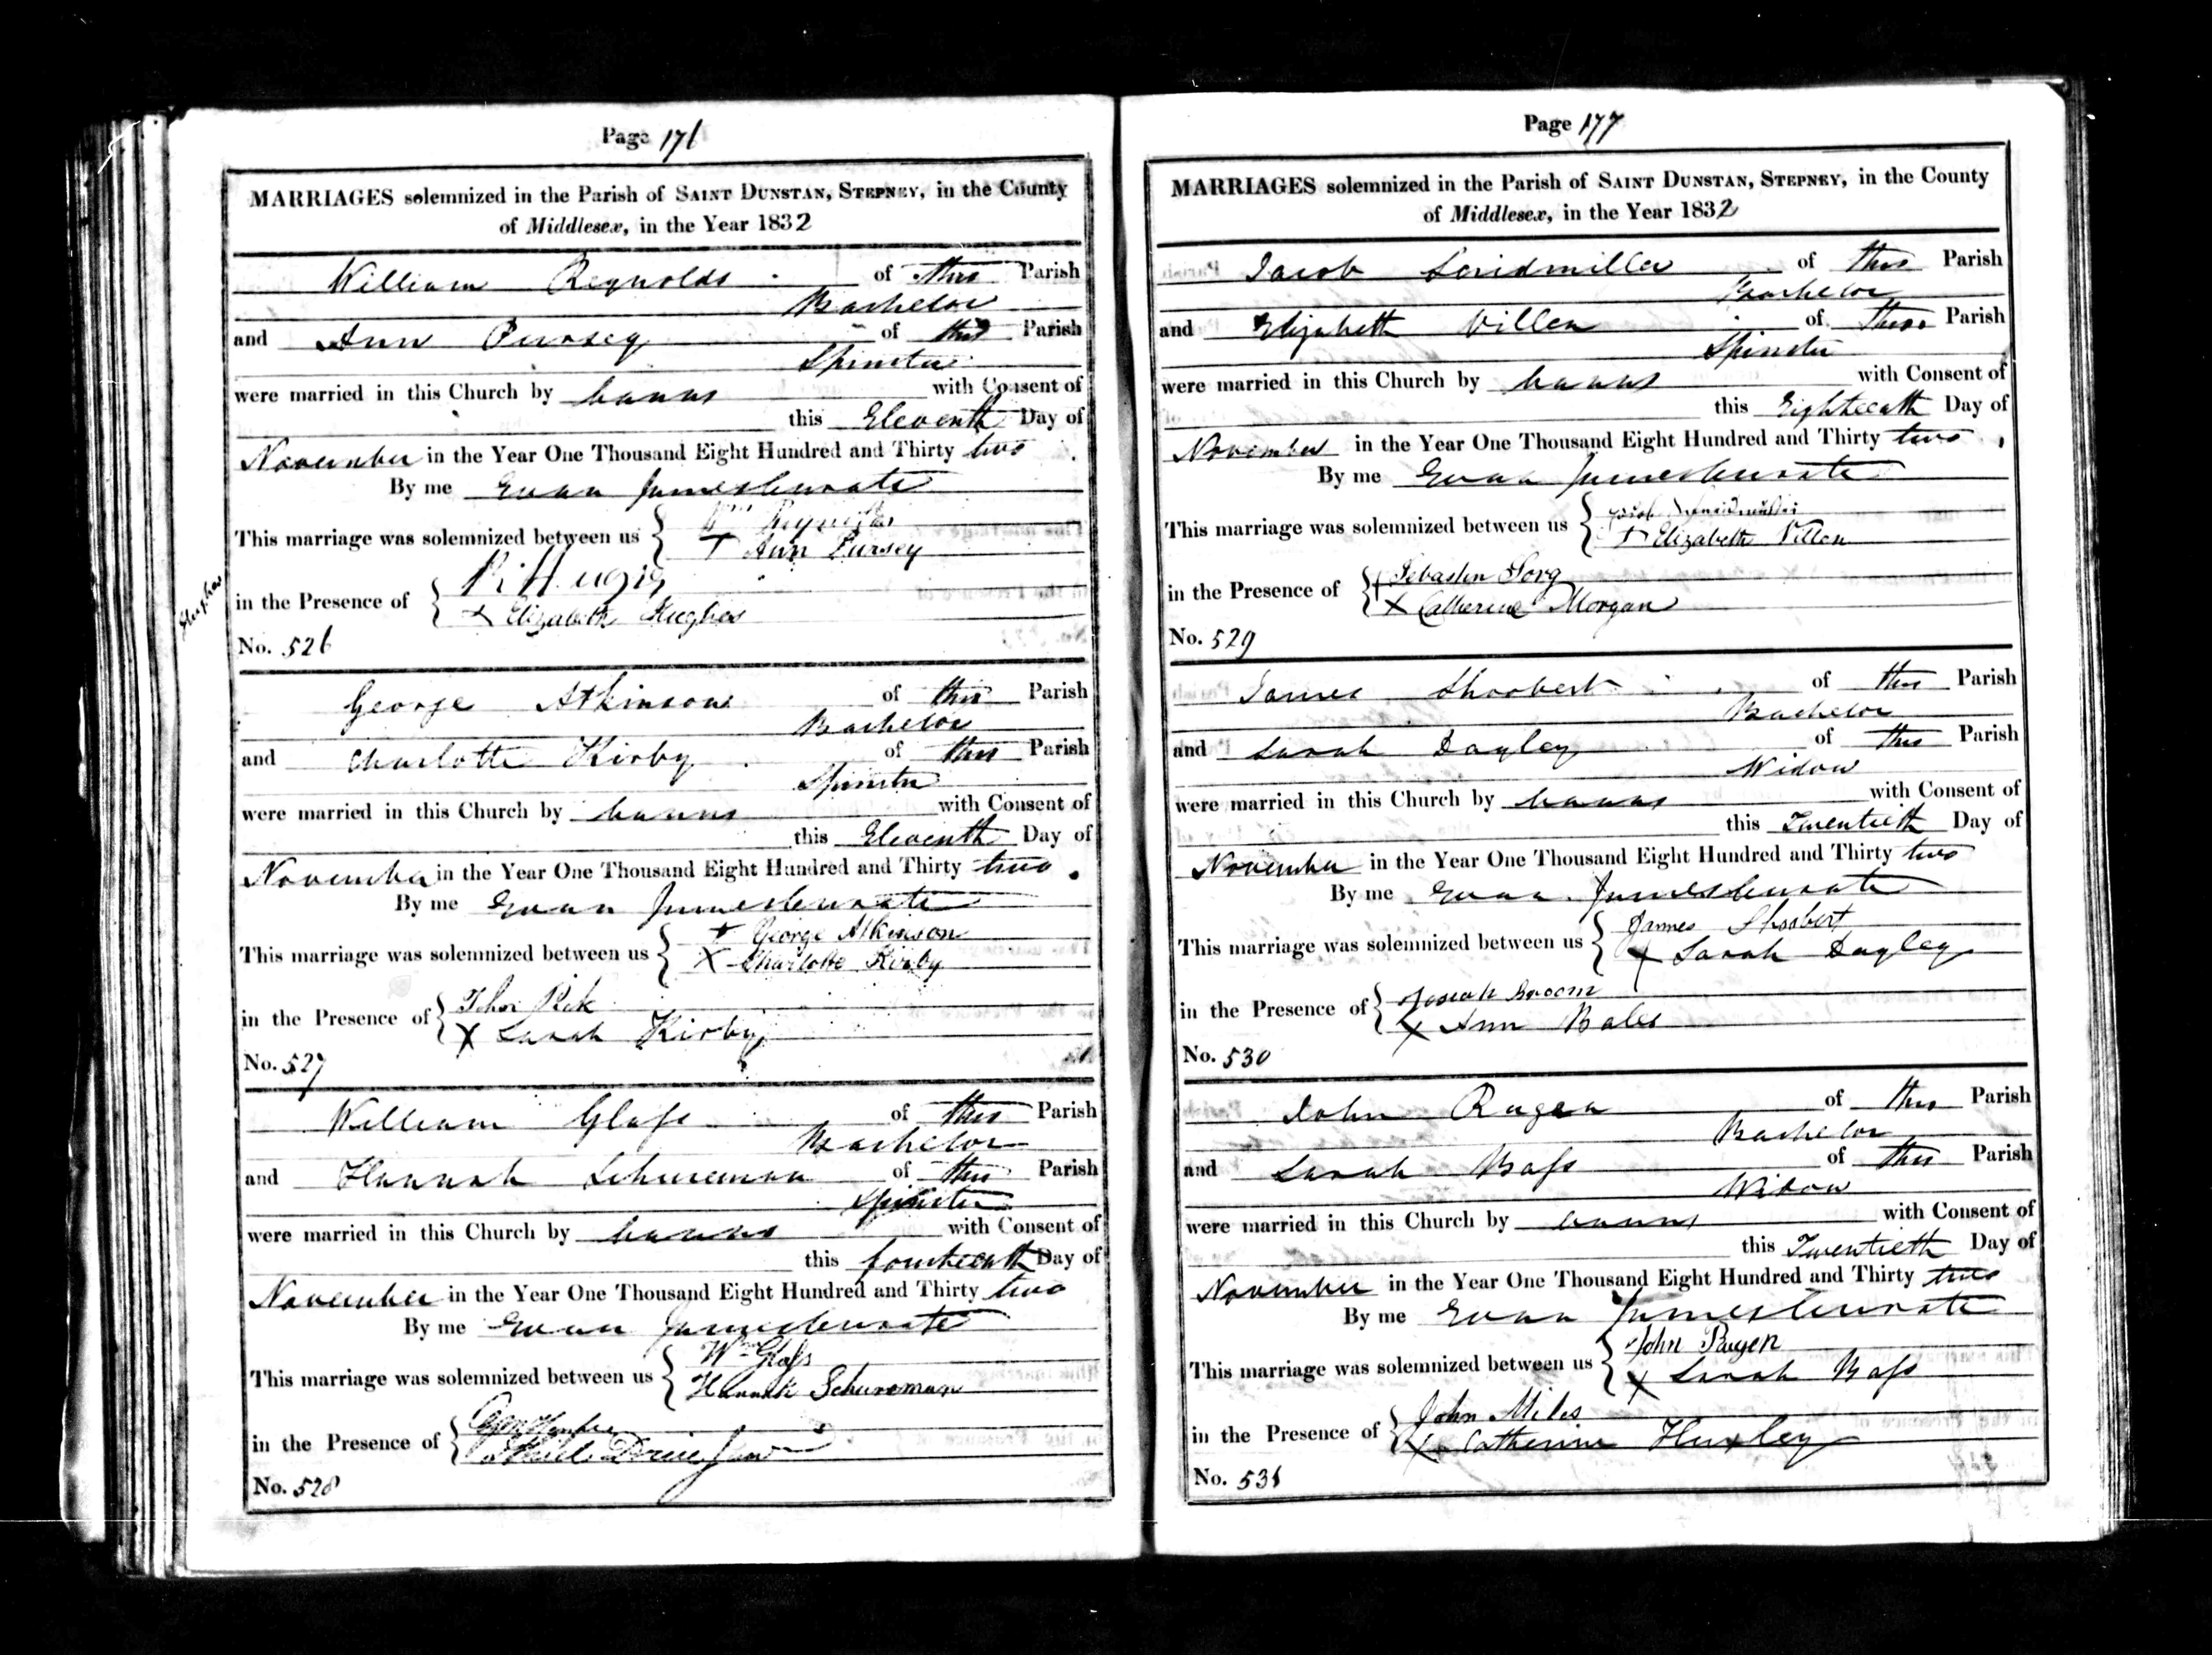 Page 176
MARRIAGES solemnized in the Parish of SAINT DUNSTAN, STEPNEY, in the County
of Middlesex, in the Year 1832
William Reynolds of this Parish
Bachelor
and Ann Pursey of this Parish
Spinster
were married in this Church by banns with Consent of
this Eleventh Day of
November in the Year One Thousand Eight Hundred and Thirty two
By me Evan James Curate
This marriage was solemnized between us { Wm Reynolds
+ Ann Pursey
Hughes
in the Presence of {
x Elizabeth Hughes
No. 526
George Atkinson of this Parish
Bachelor
and Charlotte Kirby of this Parish
Spinster
were married in this Church by banns with Consent of
this Eleventh Day of
November in the Year One Thousand Eight Hundred and Thirty two
By me Evan James Curate
This marriage was solemnized between us { + George Atkinson
X Charlotte Kirby
in the Presence of { John
X Sarah Kirby
No. 527
William Glass of this Parish
Bachelor
and Hannah Schureman of this Parish
Spinster
were married in this Church by banns with Consent of
this fourteenth Day of
November in the Year One Thousand Eight Hundred and Thirty two
By me Evan James Curate
This marriage was solemnized between us { Wm Glass
Hannah Schureman
in the Presence of {
No. 528
Page 177
MARRIAGES solemnized in the Parish of SAINT DUNSTAN, STEPNEY, in the County
of Middlesex, in the Year 1832
Jacob of this Parish
Bachelor
and Elizabeth Villen of this Parish
Spinster
were married in this Church by banns with Consent of
this Eighteenth Day of
November in the Year One Thousand Eight Hundred and Thirty two
By me Evan James Curate
This marriage was solemnized between us {
+ Elizabeth Villen
in the Presence of { + Sebastin Sorg
X Catherine Morgan
No. 529
James Shoobert of this Parish
Bachelor
and Sarah Dayley of this Parish
Widow
were married in this Church by banns with Consent of
this Twentieth Day of
November in the Year One Thousand Eight Hundred and Thirty two
By me Evan James Curate
This marriage was solemnized between us { James Shoobert
X Sarah Dayley
in the Presence of { Josiah Broom
X Ann Bales
No. 530
John Rugen of this Parish
Bachelor
and Sarah Bass of this Parish
Widow
were married in this Church by banns with Consent of
this Twentieth Day of
November in the Year One Thousand Eight Hundred and Thirty two
By me Evan James Curate
This marriage was solemnized between us { John Rugen
X Sarah Bass
in the Presence of { John Miles
X Catherine Huxley
No. 531